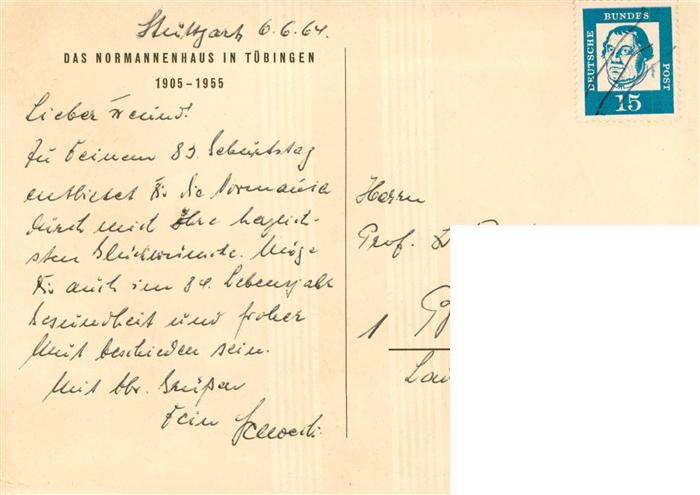 Stuttgart 6.6.64.
DAS NORMANNENHAUS IN TÜBINGEN
1905-1955
Lieber Freund!
Zu Deinem 83. Geburtstag
entbietet Dir die Normannia
durch mich ihre herzlich-
sten Glückwünsche. Möge
Dir auch im 84. Lebensjahr
Gesundheit und froher
Mut beschieden sein.
Mit bbr. Grüßen
Dein
DEUTSCHE BUNDESPOST
15
Herrn
Prof. D
1